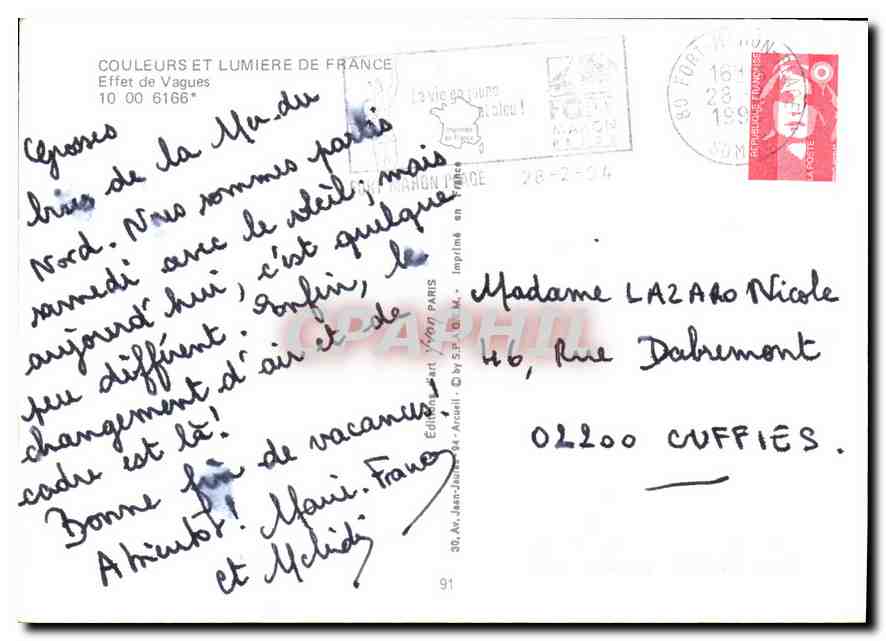 COULEURS ET LUMIERE DE FRANCE
Effet de Vagues
10 00 6166*
Grosses
bises de la Mer du
Nord. Nous sommes partis
samedi avec le soleil, mais
aujourd'hui, c'est quelque
peu différent. Enfin, le
changement d'air et de
cadre est là!
Bonne fin de vacances!
A bientôt! Marie-France
et
FORT MAHON PLAGE 28-2-94
La vie en
FORT
MAHON
80 FORT MAHON-PLAGE
16H
28
199
SOMME
REPUBLIQUE FRANÇAISE
LA POSTE
Madame LAZARO Nicole
46, Rue Dabremont
02200 CUFFIES.
Editions d'art Yvon PARIS
30, Av. Jean-Jaurès 94 - Arcueil - © by S.P.A.D.E.M. - Imprimé en France
91
CPAPHIL